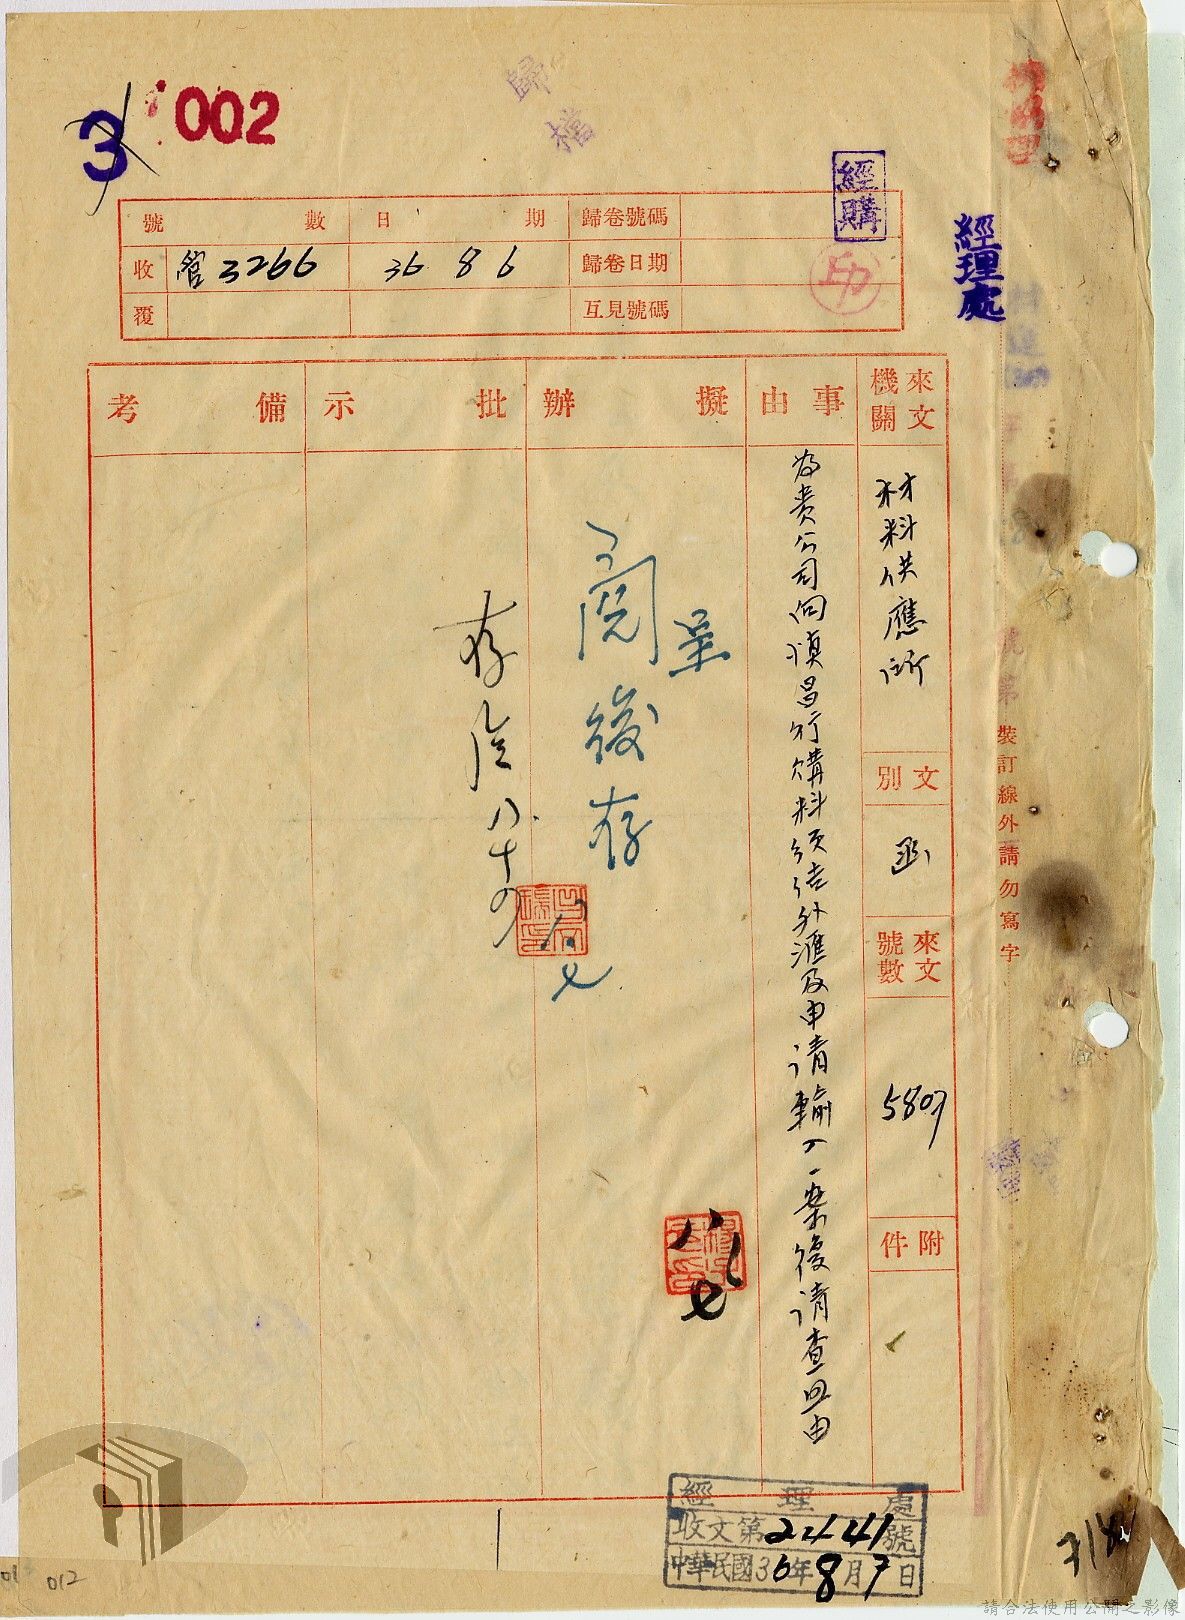 002
3
歸檔
經購
印
經理處
號數 日期 歸卷號碼
收 管3266 36 8 6 歸卷日期
覆 互見號碼
來文機關
材料供應所
文別
函
來文號數
5807
附件
事由
為貴公司向慎昌行購料須結外滙及申请輸入一案復请查照由
擬辦
呈
閱後存
八七
批示
存
八十四
備考
裝訂線外請勿寫字
經理處
收文第2441號
中華民國36年8月7日
7/8
012
請合法使用公開之影像